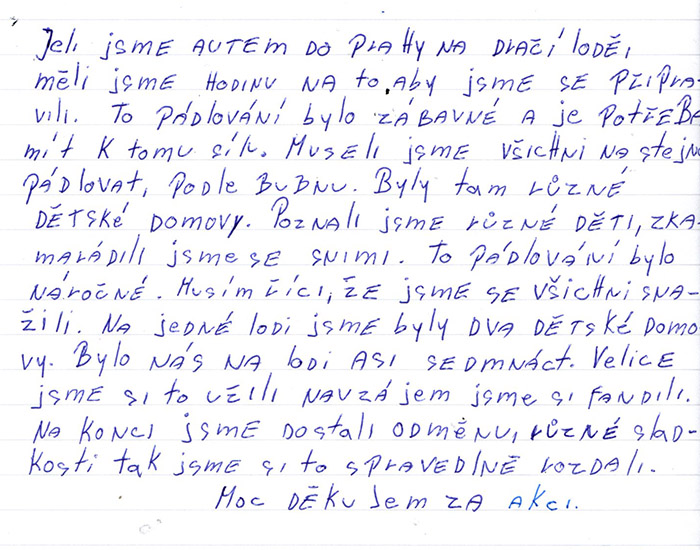 Jeli jsme autem do Prahy na dračí lodě,
měli jsme hodinu na to, aby jsme se připra-
vili. To pádlování bylo zábavné a je potřeba
mít k tomu sílu. Museli jsme všichni na stejno
pádlovat, podle bubnu. Byly tam různé
dětské domovy. Poznali jsme různé děti, zka-
marádili jsme se snimi. To pádlování bylo
náročné. Musím říci, že jsme se všichni sna-
žili. Na jedné lodi jsme byly dva dětské domo-
vy. Bylo nás na lodi asi sedmnáct. Velice
jsme si to užili navzájem jsme si fandili.
Na konci jsme dostali odměnu, různé slad-
kosti tak jsme si to spravedlně rozdali.
Moc děkujem za akci.